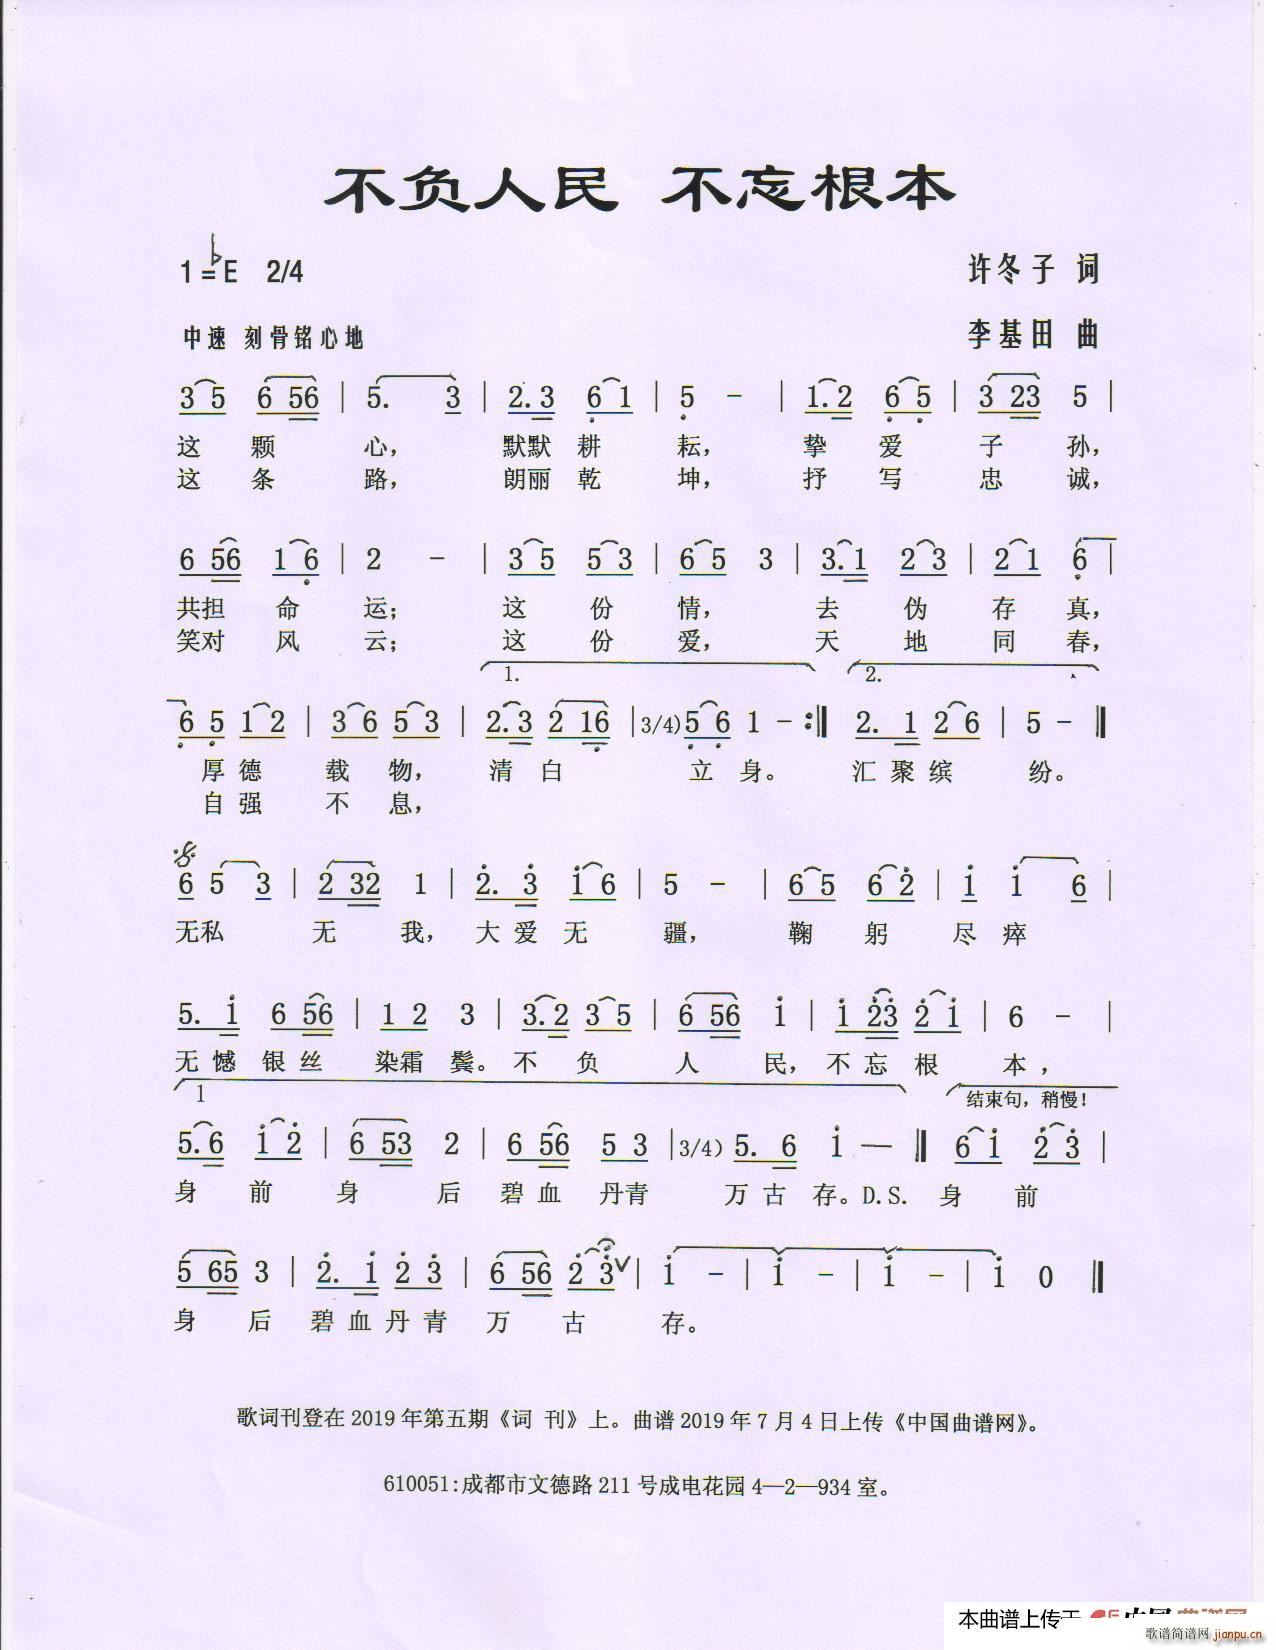 不负人民 不忘根本
1=♭E 2/4
许冬子 词
中速 刻骨铭心地
李基田 曲
3 5 6 56 | 5. 3 | 2.3 6 1 | 5 - | 1.2 6 5 | 3 23 5 |
这 颗 心, 默默 耕 耘, 挚 爱 子 孙,
这 条 路, 朗丽 乾 坤, 抒 写 忠 诚,
6 56 1 6 | 2 - | 3 5 5 3 | 6 5 3 | 3.1 2 3 | 2 1 6 |
共担 命 运; 这 份 情, 去 伪 存 真,
笑对 风 云; 这 份 爱, 天 地 同 春,
1. 2.
6 5 1 2 | 3 6 5 3 | 2.3 2 16 | 3/4) 5 6 1 - :‖ 2. 1 2 6 | 5 - ‖
厚 德 载 物, 清 白 立 身。 汇 聚 缤 纷。
自 强 不 息,
6 5 3 | 2 32 1 | 2. 3 1 6 | 5 - | 6 5 6 2 | 1 1 6 |
无私 无 我, 大 爱 无 疆, 鞠 躬 尽 瘁
5. 1 6 56 | 1 2 3 | 3.2 3 5 | 6 56 1 | 1 23 2 1 | 6 - |
无 憾 银 丝 染霜 鬓。 不 负 人 民, 不 忘 根 本,
1 结束句, 稍慢!
5.6 1 2 | 6 53 2 | 6 56 5 3 | 3/4) 5. 6 1 — ‖ 6 1 2 3 |
身 前 身 后 碧 血 丹青 万 古 存。D.S. 身 前
5 65 3 | 2. 1 2 3 | 6 56 2 3 V | 1 - | 1 - | 1 - | 1 0 ‖
身 后 碧 血 丹 青 万 古 存。
歌词刊登在 2019 年第五期《词 刊》上。曲谱 2019 年 7 月 4 日上传《中国曲谱网》。
610051:成都市文德路 211 号成电花园 4—2—934 室。
本曲谱上传于
歌谱简谱网 jianpu.cn